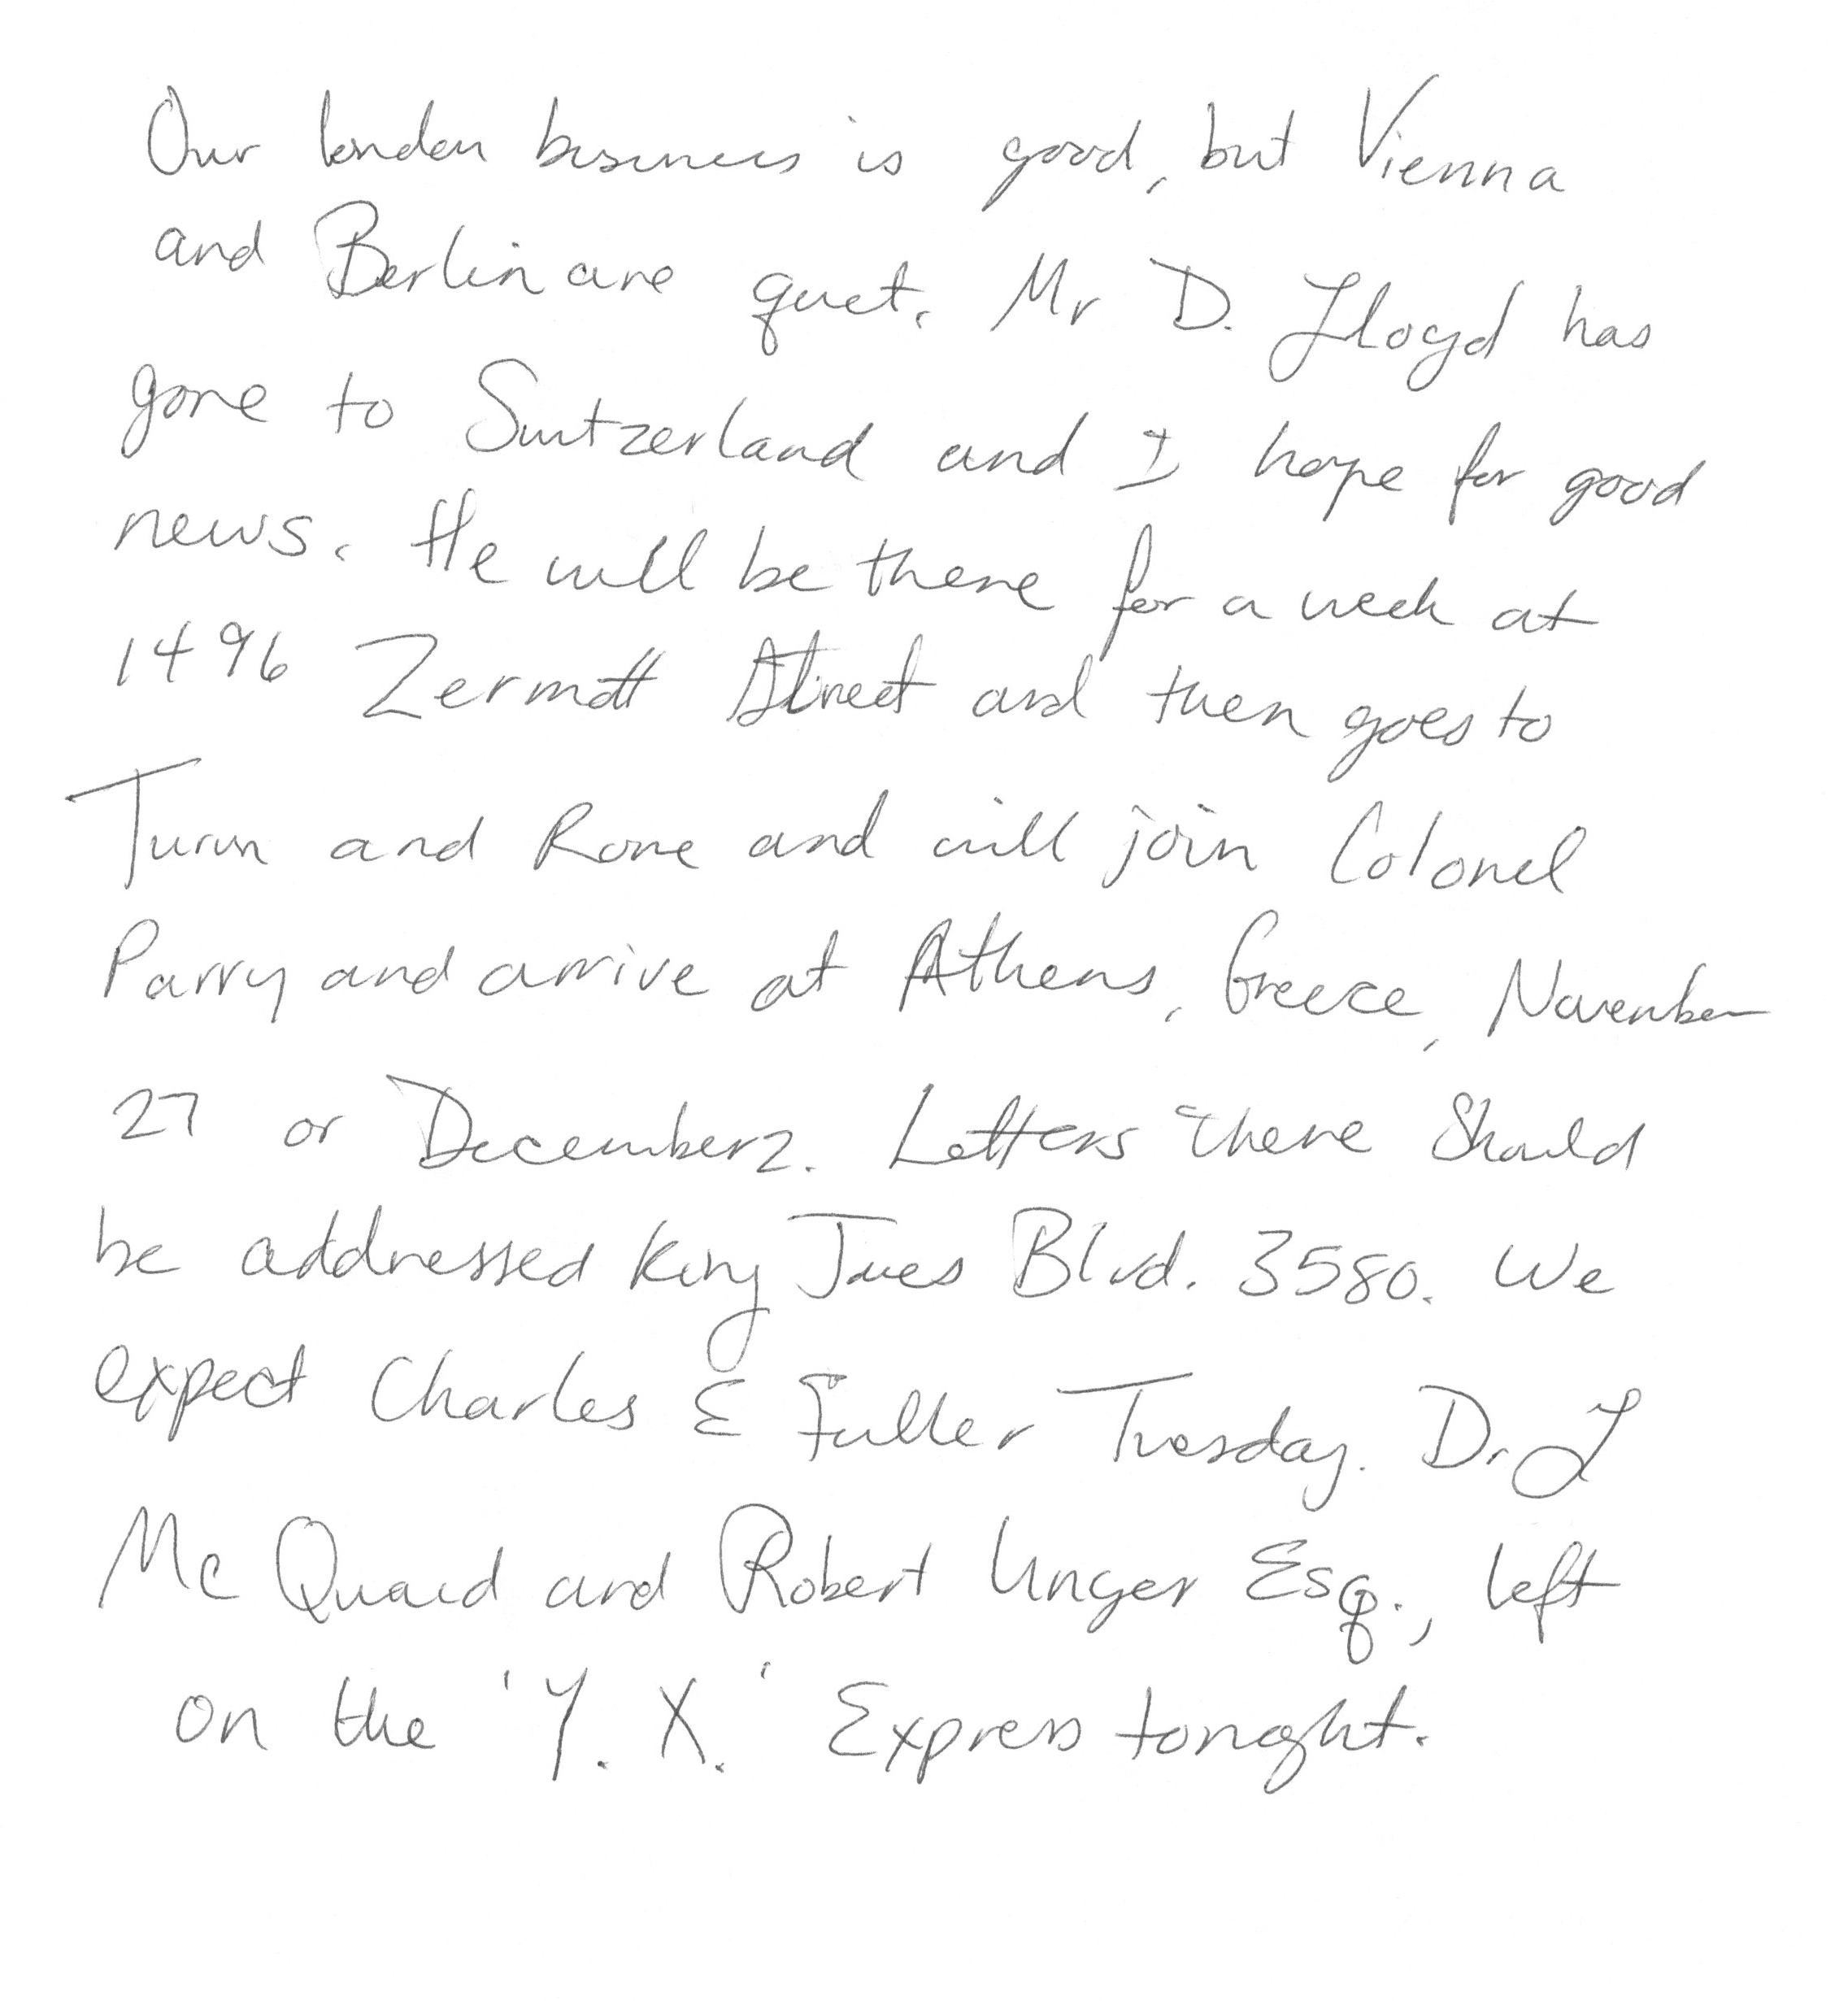 Our london business is good, but Vienna
and Berlin are quiet. Mr D. Lloyd has
gone to Switzerland and I hope for good
news. He will be there for a week at
1496 Zermott Street and then goes to
Turin and Rome and will join Colonel
Parry and arrive at Athens, Greece, November
27 or December 2. Letters there Should
be addressed King James Blvd. 3580. We
expect Charles E Fuller Tuesday. Dr. L
Mc Quaid and Robert Unger Esq., left
on the 'Y. X.' Express tonight.